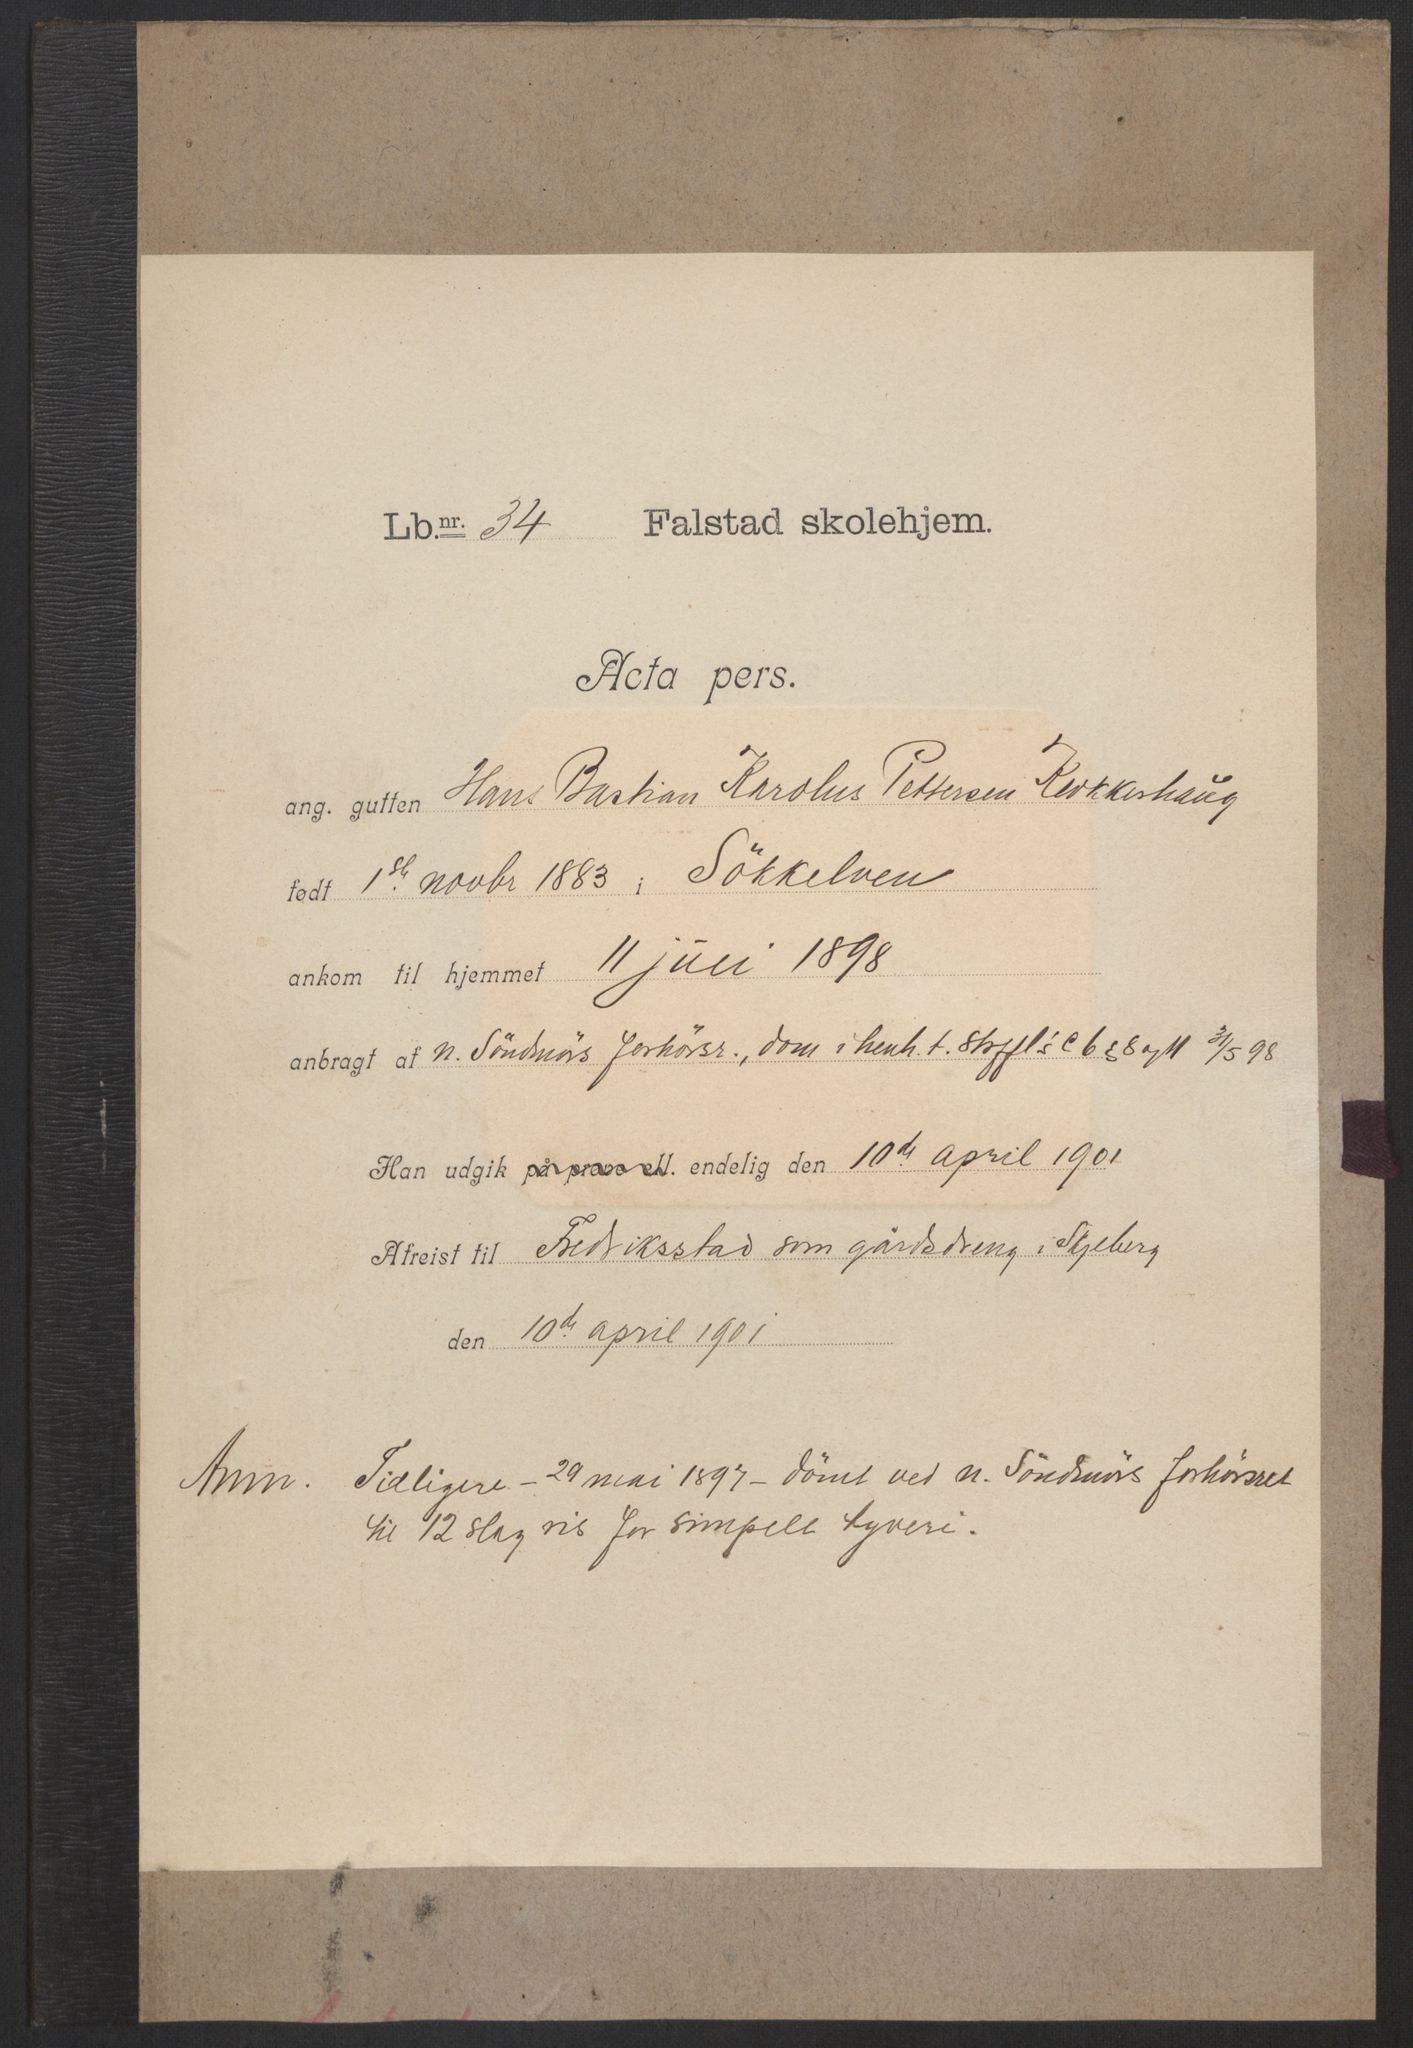 Lb.nr. 34 Falstad skolehjem.
Acta pers.
ang. gutten Hans Bastian Karolus Pettersen Klokkerhaug
født 1ste novbr 1883 i Sökkelven
ankom til hjemmet 11 juli 1898
anbragt af n. Söndmörs forhörsr., dom i henh. t. Strffl's C 6 § 8 og 11 31/5 98
Han udgik på prøve ell. endelig den 10de april 1901
Afreist til Fredriksstad som gårdsdreng i Skjeberg
den 10de april 1901
Anm. Tidligere – 29 mai 1897 – dömt ved n. Söndmörs forhörsret
til 12 slag ris for simpelt tyveri.